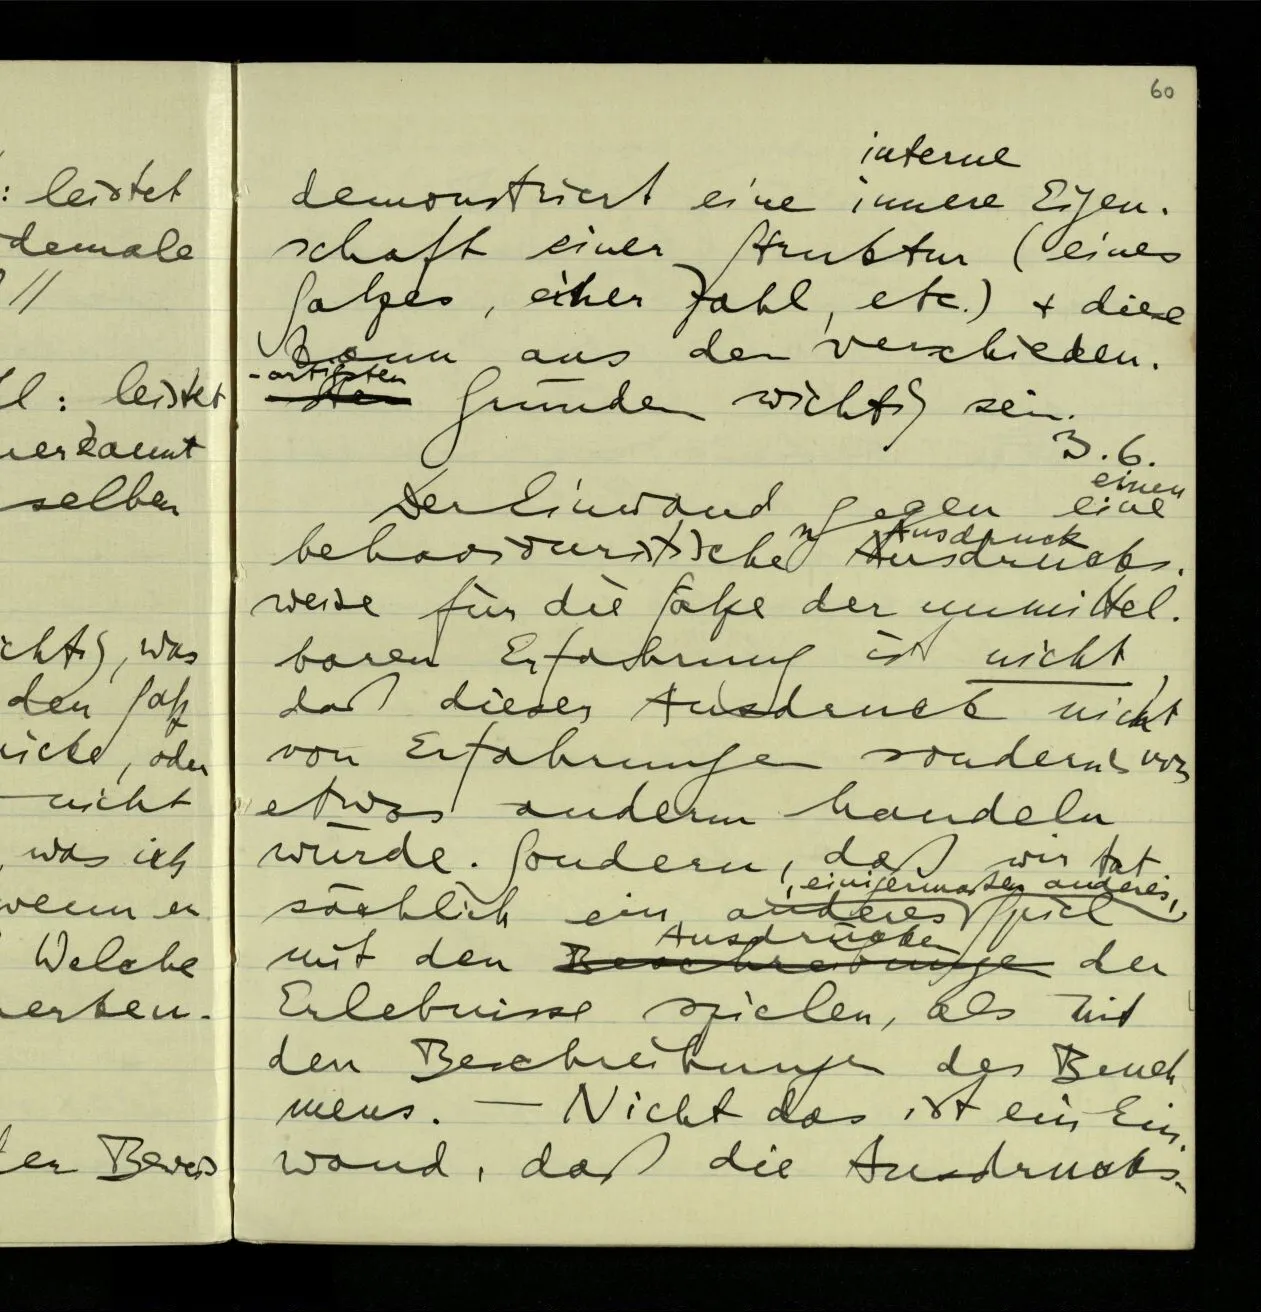 60
: leistet
demale
//
l: leistet
erkannt
selben
ichtig, was
den Satz
ücke, oder
– nicht
, was ich
wenn er
Welche
werten.
der Beweis
interne
demonstriert eine innere Eigen-
schaft einer Struktur (eines
Satzes, einer Zahl, etc.) + diese
kann aus den verschieden-
-artigsten
sten Gründen wichtig sein.
3.6.
einen
Der Einwand gegen eine
n Ausdruck
behaviouristische Ausdrucks-
weise für die Sätze der unmittel-
baren Erfahrung ist nicht,
daß dieser Ausdruck nicht
von Erfahrungen sondern von
etwas anderm handeln
würde. Sondern, daß wir tat
, einigermaßen anderes,
sächlich ein anderes Spiel
Ausdrücken
mit den Beschreibungen der
Erlebnisse spielen, als mit
den Beschreibungen des Beneh
mens. — Nicht das ist ein Ein-
wand, daß die Ausdrucks-